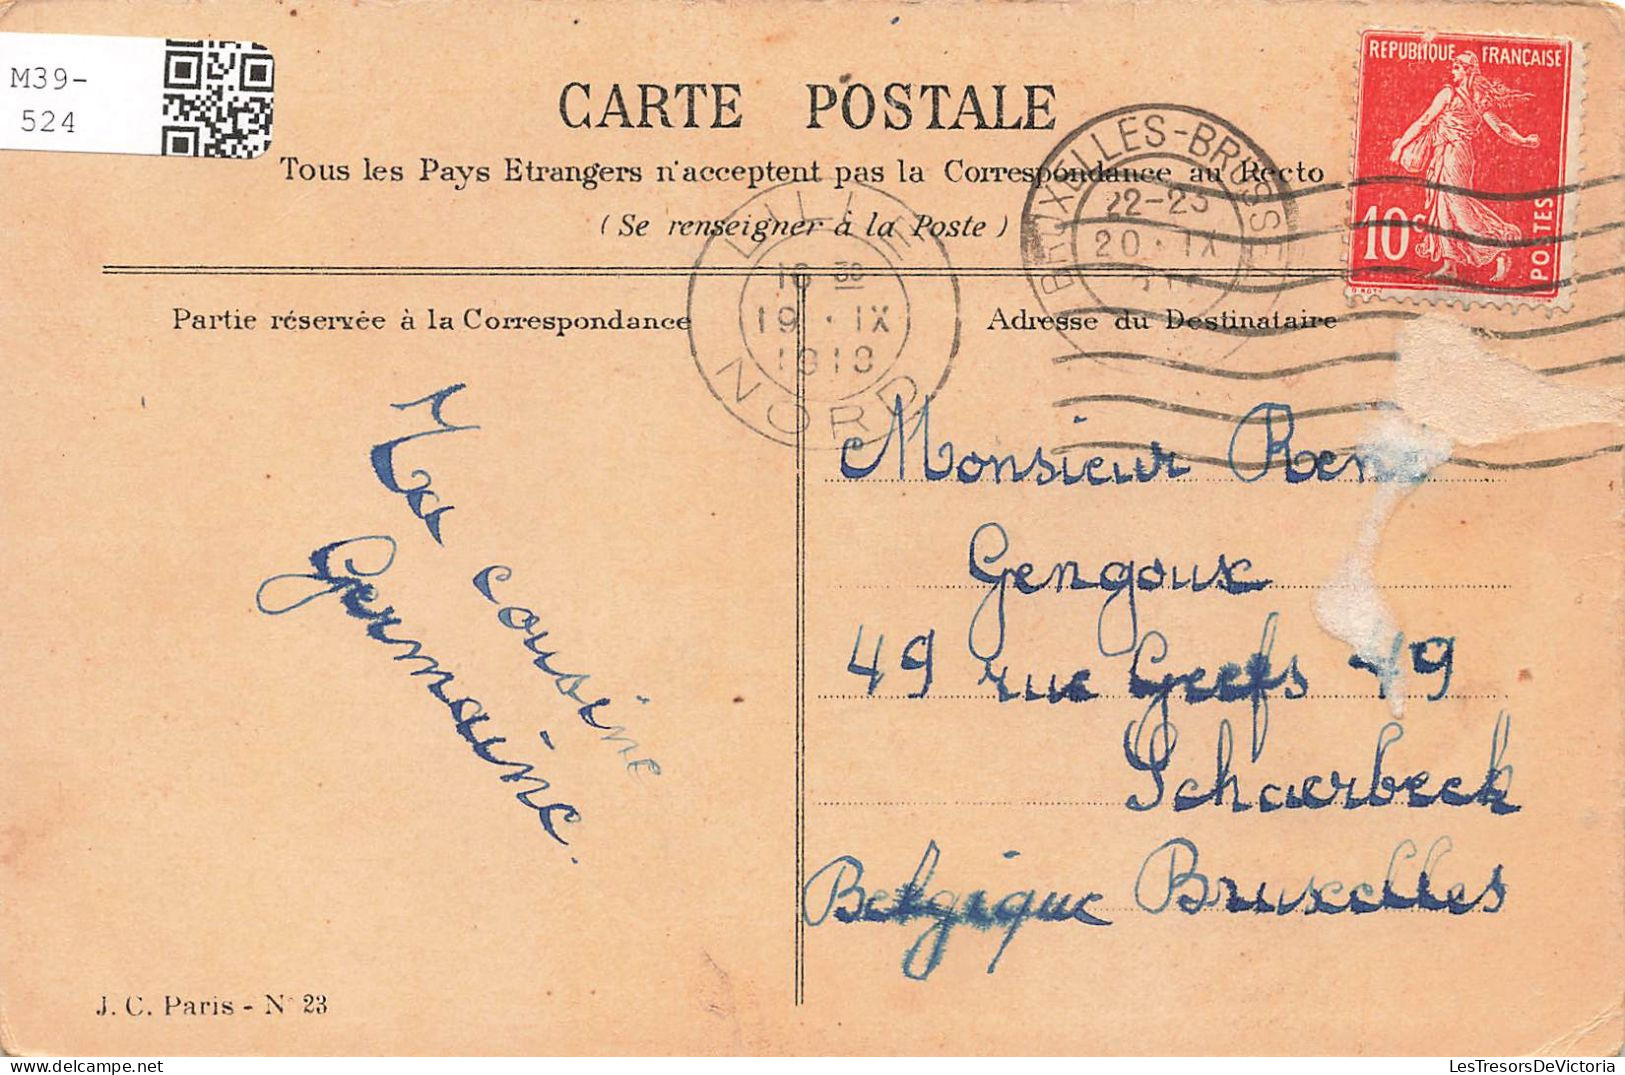 M39-
524
CARTE POSTALE
Tous les Pays Etrangers n'acceptent pas la Correspondance au Recto
(Se renseigner à la Poste)
REPUBLIQUE FRANÇAISE
10c
POSTES
BRUXELLES-BRUSSEL
22-23
20·IX
LILLE
16 30
19·IX
1919
NORD
Partie réservée à la Correspondance
Adresse du Destinataire
Ma cousine
Germaine.
Monsieur René
Gengoux
49 rue Geefs 49
Schaerbeek
Belgique Bruxelles
J. C. Paris - N° 23
LesTresorsDeVictoria